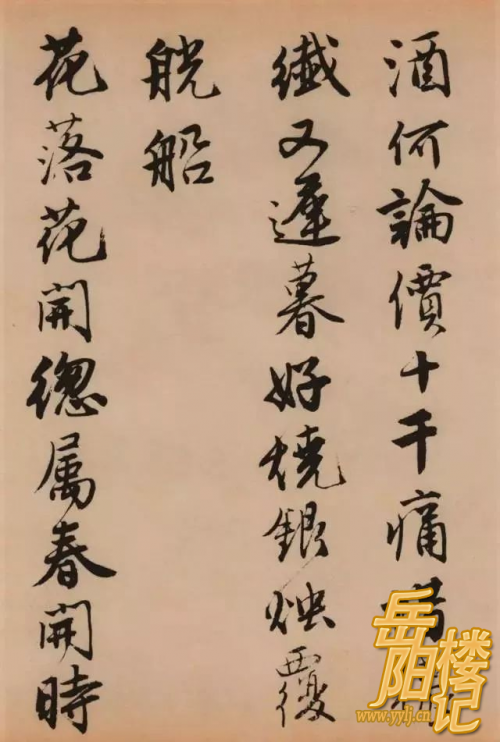 酒何論價十千痛惜
纖又遲暮好燒銀烛覆
觥船
花落花開總屬春開時
岳阳
楼记
www.yylj.cn